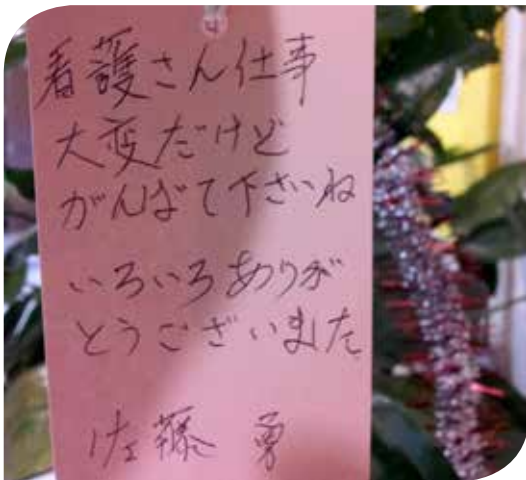 看護さん仕事
大変だけど
がんばて下さいね
いろいろありが
とうございました
佐藤 勇